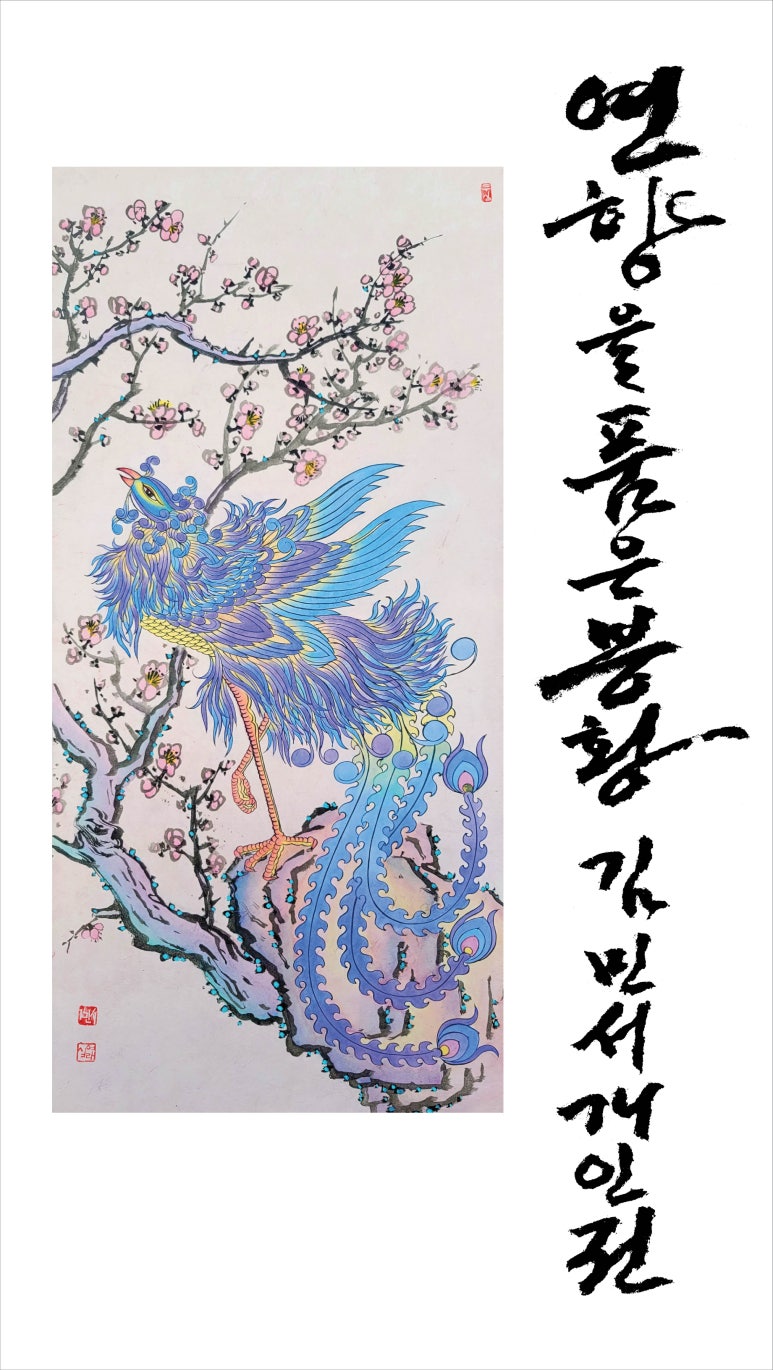 연향을품은봉황 김민서개인전